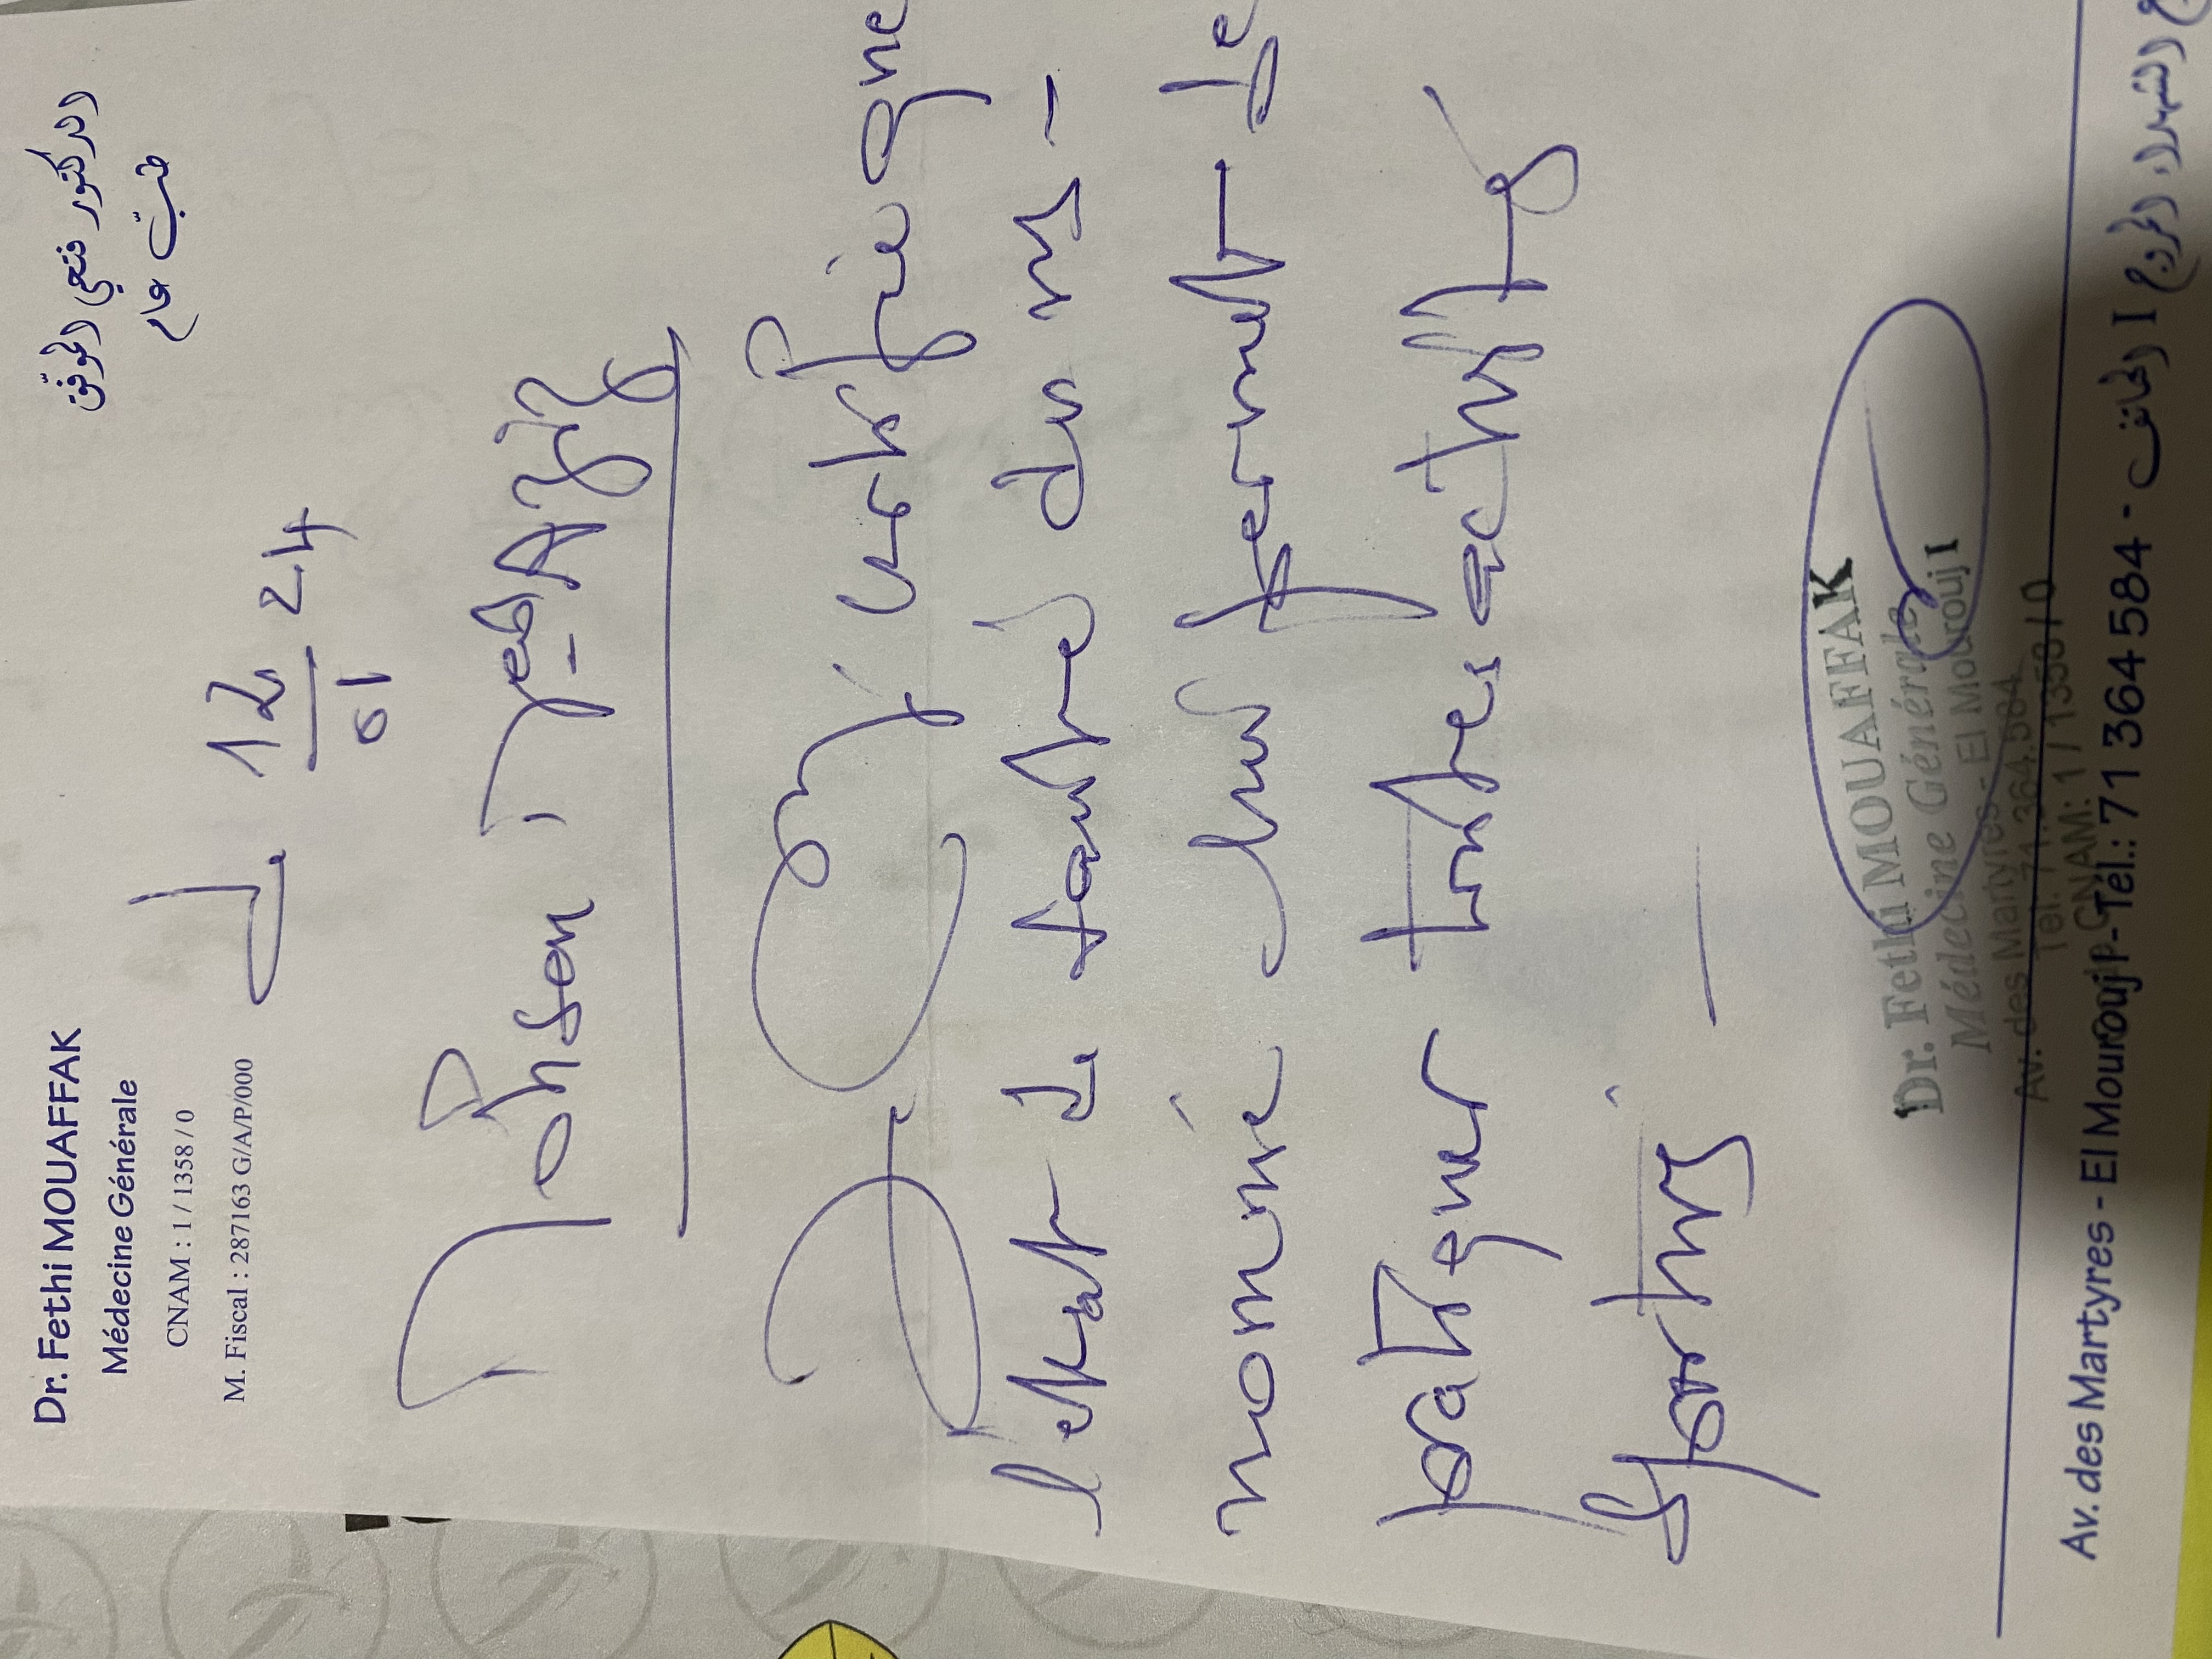 Dr. Fethi MOUAFFAK
Médecine Générale
CNAM : 1 / 1358 / 0
M. Fiscal : 287163 G/A/P/000
الدكتور فتحي الموفّق
طبّ عام
12/01 24
Mohsen
certifie que
l'etat de santé du
nommé lui permet de
pratiquer toutes activités
sportives
Dr. Fethi MOUAFFAK
Médecine Générale
Av. des Martyres - El Mourouj I
Tél. 71.364.584
CNAM: 1 / 1358 / 0
Av. des Martyres - El Mourouj I - Tél.: 71 364 584 - الهاتف I الشهداء، المروج